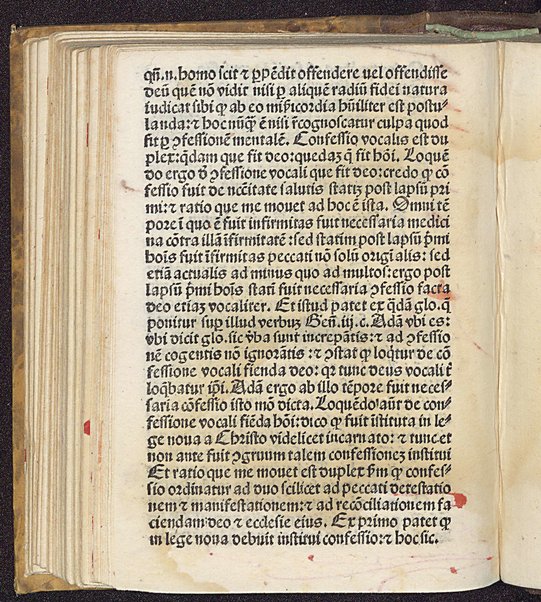 qñ.n. homo scit ⁊ ꝓpẽdit offendere uel offendisse
deũ quẽ nõ vidit nisi ꝑ aliquẽ radiũ fidei natura
iudicat sibi ꝙ ab eo mĩcordia hũiliter est postu-
landa: ⁊ hoc nũꝙ̃ ẽ nisi r̃cognoscatur culpa quod
fit ꝑ ꝯfessionẽ mentalẽ. Confessio vocalis est du
plex: q̃dam que fit deo: quedaz q̃ fit hõi. Loquẽ
do ergo ð ꝯfessione vocali que fit deo: credo ꝙ cõ
fessio fuit de nccẽitate salutis statiz post lapsũ pri
mi: ⁊ ratio que me mouet ad hoc ẽ ista. Omni tẽ
pore ĩ quo ẽ fuit infirmitas fuit necessaria medici
na cõtra illã ĩfirmitatẽ: sed statim post lapsũ pr̃mi
hoĩs fuit ĩfirmitas peccati nõ solũ origĩalis: sed
etiã actualis ad minus quo ad multos: ergo post
lapsũ pr̃mi hoĩs stati fuit necessaria ꝯfessio facta
deo etiaz vocaliter. Et istud patet ex q̃dã glo. q̃
ponitur suꝑ illud verbuz Geñ. iij. c. Adã vbi es:
vbi dicit glo. sic v̾ba sunt increpãtis: ⁊ ad ꝯfessio
nẽ cogentis nõ ignorãtis: ⁊ ꝯstat ꝙ loq̃tur de cõ
fessione vocali fienda deo: qr tunc deus vocali t̾
loq̃batur ip̃i. Adã ergo ab illo tẽpore fuit neces-
saria cõfessio isto mõ dicta. Loquẽdo aũt de con-
fessione vocali fiẽda hõi: dico ꝙ fuit ĩstituta in le-
ge noua a Christo videlicet incarnato: ⁊ tunc et
non ante fuit ꝯgruum talem confessionez institui
Et ratio que me mouet est duplex p̃m ꝙ confes-
sio ordinatur ad duo scilicet ad peccati detestatio
nem ⁊ manifestationem: ⁊ ad recõciliationem fa
ciendam deo ⁊ ecclesie eius. Ex primo patet ꝙ
in lege noua debuit institui confessio: ⁊ hoc sic.